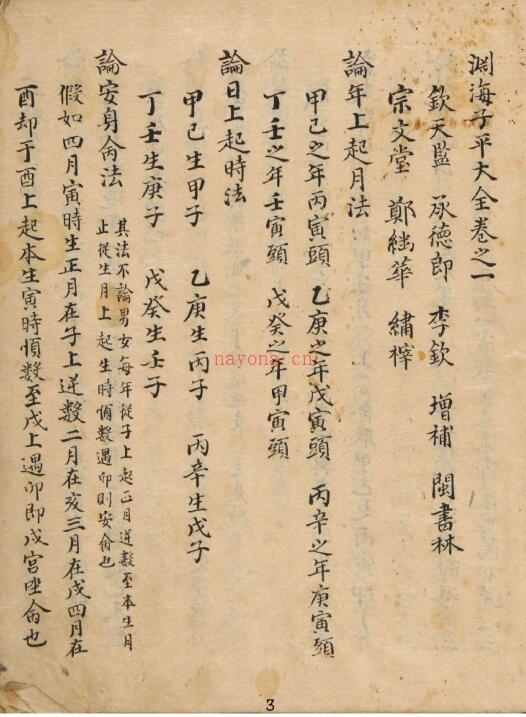 淵海子平大全卷之一
欽天監 承德郎 李欽 增補 閩書林
宗文堂 鄭繼華 繡梓
論年上起月法
甲己之年丙寅頭 乙庚之年戊寅頭 丙辛之年庚寅頭
丁壬之年壬寅頭 戊癸之年甲寅頭
論日上起時法
甲己生甲子 乙庚生丙子 丙辛生戊子
丁壬生庚子 戊癸生壬子
論安身命法 其法不論男女每年從子上起正月逆数至本生月
止從生月上起生時順数遇卯則安命也
假如四月寅時生正月在子上逆数二月在亥三月在戌四月在
酉却于酉上起本生寅時順数至戌上遇卯即戌宮坐命也
nayona.cn
3